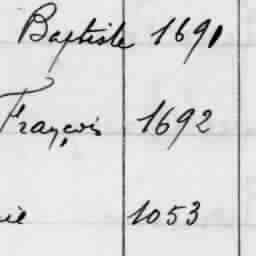 Baptiste 1691
François 1692
1053